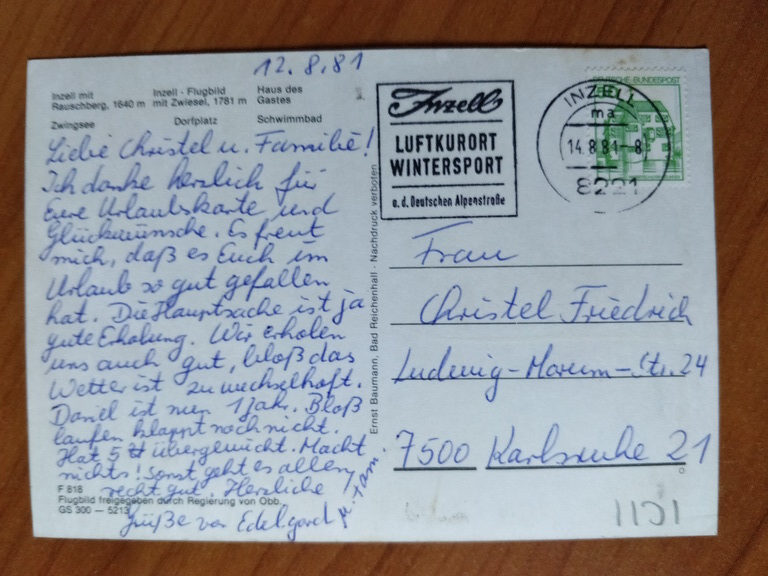 12.8.81
Inzell mit
Rauschberg, 1640 m
Inzell - Flugbild
mit Zwiesel, 1781 m
Haus des
Gastes
Zwingsee
Dorfplatz
Schwimmbad
Liebe Christel u. Familie!
Ich danke herzlich für
Eure Urlaubskarte und
Glückwünsche. Es freut
mich, daß es Euch im
Urlaub so gut gefallen
hat. Die Hauptsache ist ja
gute Erholung. Wir erholen
uns auch gut, bloß das
Wetter ist zu wechselhaft.
Daniel ist nun 1 Jahr. Bloß
laufen klappt noch nicht.
Hat 5 ℔ übergewicht. Macht
nichts! Sonst geht es allen
recht gut. Herzliche
Grüße von Edelgard u. Fam.
F 818
Flugbild freigegeben durch Regierung von Obb.
GS 300 — 5213
Ernst Baumann, Bad Reichenhall · Nachdruck verboten
Inzell
LUFTKURORT
WINTERSPORT
a. d. Deutschen Alpenstraße
INZELL
ma
14.8.81-8
8221
DEUTSCHE BUNDESPOST
Frau
Christel Friedrich
Ludwig-Marum-Str. 24
7500 Karlsruhe 21